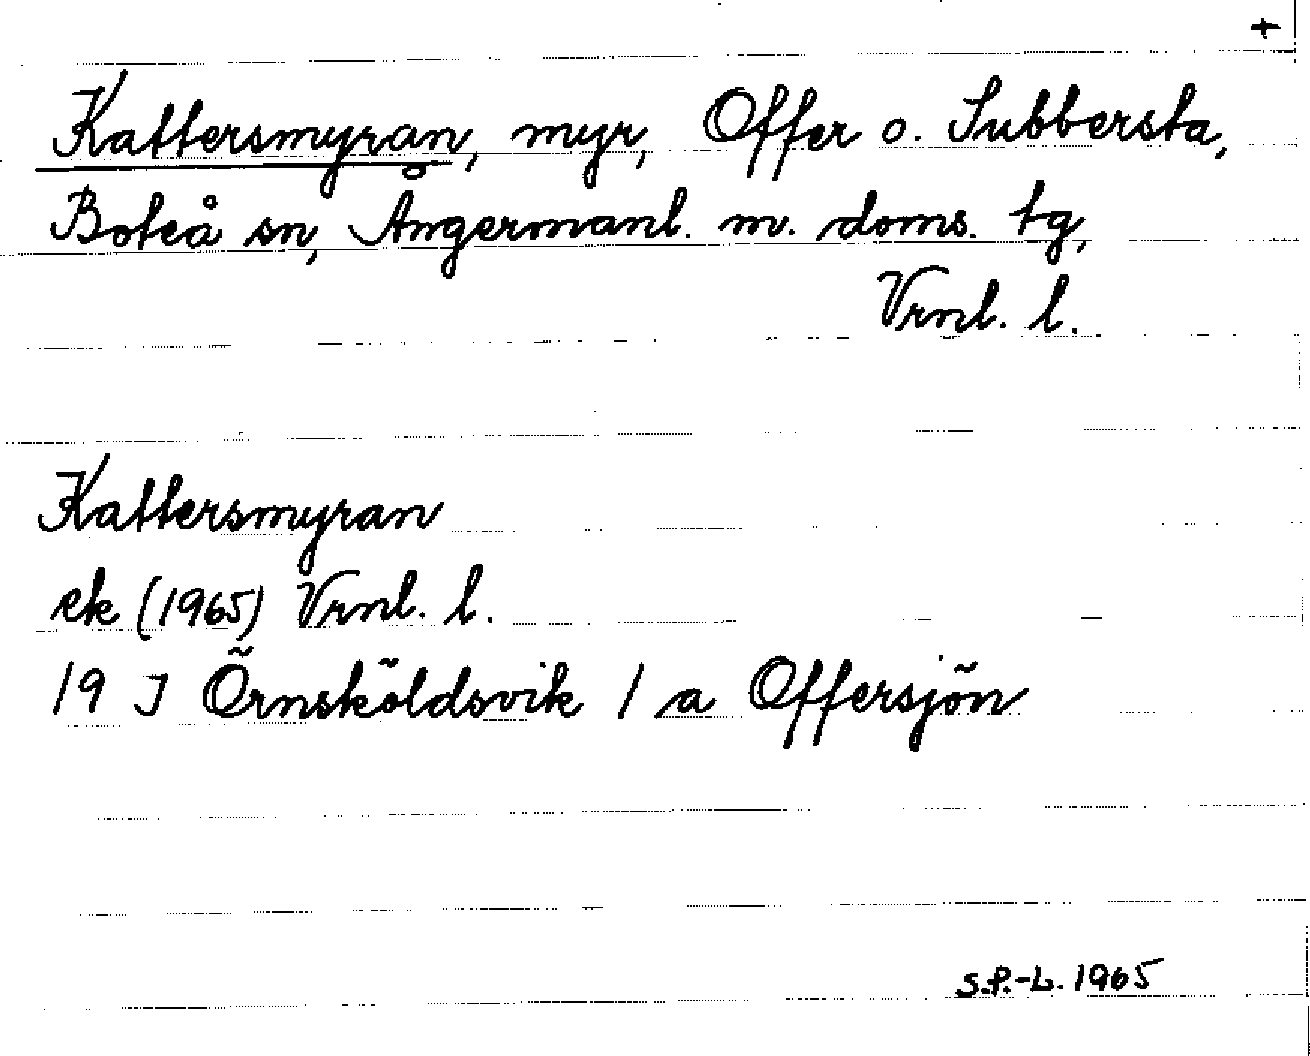 +
Kattersmyran, myr, Offer o. Subbersta,
Boteå sn, Ångermanl. m. doms. tg,
Vrnl. l.
Kattersmyran
ek (1965) Vrnl. l.
19 J Örnsköldsvik 1 a Offersjön
S.P.-L. 1965